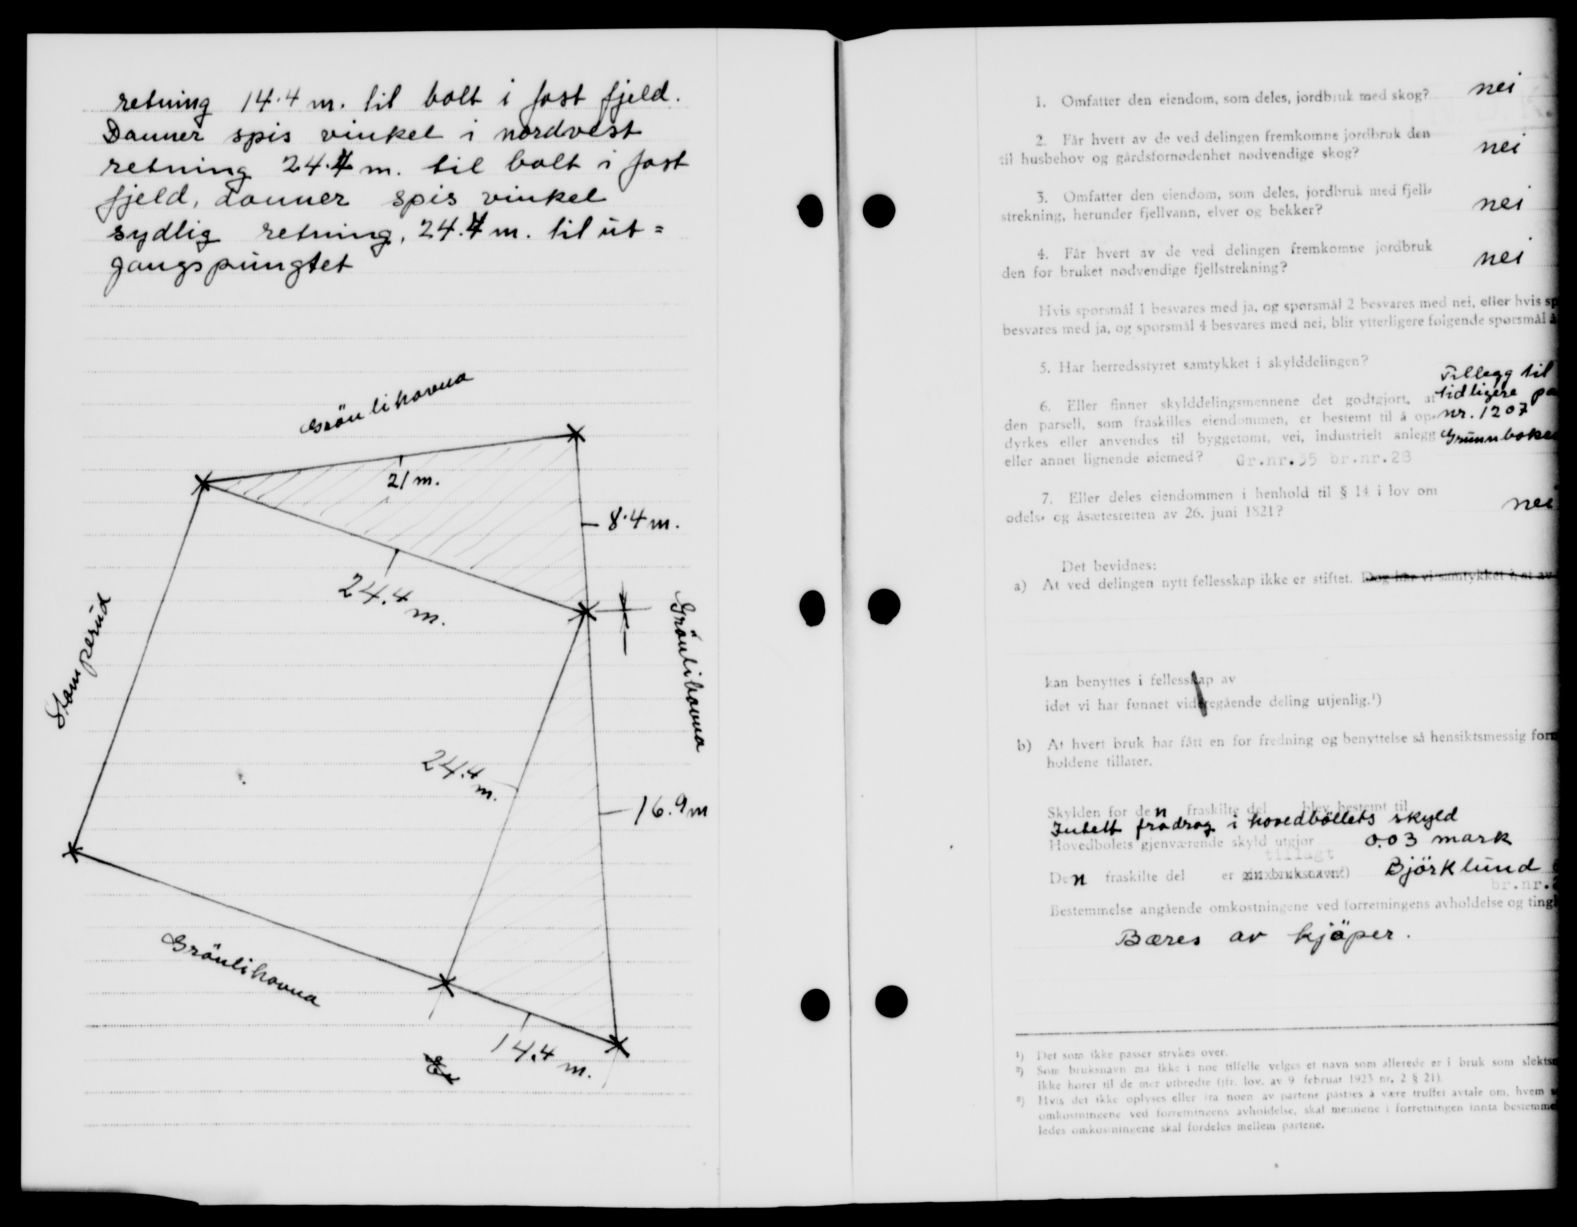 retning 14.4 m. til bolt i fast fjeld.
Danner spis vinkel i nordvest
retning 24.4 m. til bolt i fast
fjeld, danner spis vinkel
sydlig retning, 24.4 m. til ut=
gangspungtet
Grönlihavna
21 m.
8.4 m.
24.4 m.
Stamperud
Grönlihavna
24.4 m.
16.9 m
Grönlihavna
14.4 m.
1. Omfatter den eiendom, som deles, jordbruk med skog? nei
2. Får hvert av de ved delingen fremkomne jordbruk den
til husbehov og gårdsfornødenhet nødvendige skog? nei
3. Omfatter den eiendom, som deles, jordbruk med fjell-
strekning, herunder fjellvann, elver og bekker? nei
4. Får hvert av de ved delingen fremkomne jordbruk
den for bruket nødvendige fjellstrekning? nei
Hvis spørsmål 1 besvares med ja, og spørsmål 2 besvares med nei, eller hvis sp
besvares med ja, og spørsmål 4 besvares med nei, blir ytterligere følgende spørsmål å
5. Har herredsstyret samtykket i skylddelingen?
Tillegg til
6. Eller finner skylddelingsmennene det godtgjort, at tidligere pa
den parsell, som fraskilles eiendommen, er bestemt til å op- nr. 1207
dyrkes eller anvendes til byggetomt, vei, industrielt anlegg Grunnboken
eller annet lignende øiemed? Gr.nr.35 br.nr.28
7. Eller deles eiendommen i henhold til § 14 i lov om
odels- og åsætesretten av 26. juni 1821? nei
Det bevidnes:
a) At ved delingen nytt fellesskap ikke er stiftet. Dog har vi samtykket i, at av
kan benyttes i fellesskap av
idet vi har funnet videregående deling utjenlig.¹)
b) At hvert bruk har fått en for fredning og benyttelse så hensiktsmessig form
holdene tillater.
Skylden for den fraskilte del blev bestemt til
Intett fradrag i hovedböllets skyld
Hovedbølets gjenværende skyld utgjør 0.03 mark
tillagt
Den fraskilte del er gitt bruksnavn²) Björklund
br.nr.
Bestemmelse angående omkostningene ved forretningens avholdelse og tingl
Bæres av kjöper.
¹) Det som ikke passer strykes over.
²) Som bruksnavn må ikke i noe tilfelle velges et navn som allerede er i bruk som slektsn
ikke hører til de mer utbredte (jfr. lov. av 9 februar 1923 nr. 2 § 21).
³) Hvis det ikke oplyses eller fra noen av partene påstås å være truffet avtale om, hvem s
omkostningene ved forretningens avholdelse, skal mennene i forretningen innta bestemme
ledes omkostningene skal fordeles mellem partene.